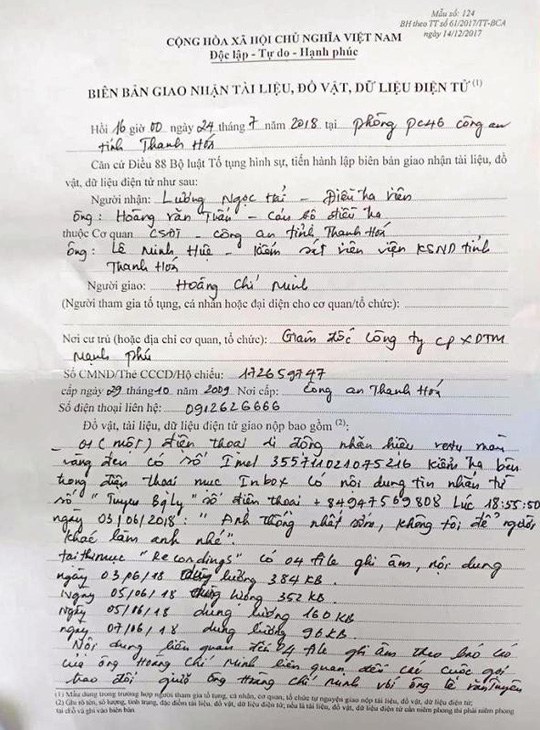 Mẫu số: 124
BH theo TT số 61/2017/TT-BCA
ngày 14/12/2017
CỘNG HÒA XÃ HỘI CHỦ NGHĨA VIỆT NAM
Độc lập - Tự do - Hạnh phúc
BIÊN BẢN GIAO NHẬN TÀI LIỆU, ĐỒ VẬT, DỮ LIỆU ĐIỆN TỬ (1)
Hồi 16 giờ 00 ngày 24 tháng 7 năm 2018 tại phòng PC46 công an
tỉnh Thanh Hoá
Căn cứ Điều 88 Bộ luật Tố tụng hình sự, tiến hành lập biên bản giao nhận tài liệu, đồ
vật, dữ liệu điện tử như sau:
Người nhận: Lương Ngọc Hải - Điều tra viên
ông: Hoàng Văn Tuấn - Cán bộ điều tra
thuộc Cơ quan CSĐT - công an tỉnh Thanh Hoá
ông: Lê Minh Huê - Kiểm sát viên viện KSND tỉnh
Thanh Hoá
Người giao: Hoàng Chí Minh
(Người tham gia tố tụng, cá nhân hoặc đại diện cho cơ quan/tổ chức):
Nơi cư trú (hoặc địa chỉ cơ quan, tổ chức): Giám đốc công ty CP XDTM
Mạnh Phú
Số CMND/Thẻ CCCD/Hộ chiếu: 172659747
cấp ngày 29 tháng 10 năm 2009 Nơi cấp: Công an Thanh Hoá
Số điện thoại liên hệ: 0912626666
Đồ vật, tài liệu, dữ liệu điện tử giao nộp bao gồm (2):
- 01 (một) điện thoại di động nhãn hiệu màu
vàng đen có số Imel 355711021075216 kiểm tra bên
trong điện thoại mục Inbox có nội dung tin nhắn từ
số "Tuyen BqLy" số điện thoại +84947569808 Lúc 18:55:50
ngày 03/06/2018: "Anh thống nhất sớm, không tôi để người
khác làm anh nhé".
tại thư mục "Recordings" có 04 file ghi âm, nội dung
ngày 03/06/18 dung lượng 384 KB.
Ngày 05/06/18 dung lượng 352 KB.
Ngày 05/06/18 dung lượng 160 KB
ngày 07/06/18 dung lượng 96 KB.
Nội dung liên quan đến 04 file ghi âm theo báo cáo
của ông Hoàng Chí Minh liên quan đến các cuộc gọi
trao đổi giữa ông Hoàng Chí Minh với ông Lê Văn Tuyên
(1) Mẫu dùng trong trường hợp người tham gia tố tụng, cá nhân, cơ quan, tổ chức tự nguyện giao nộp tài liệu, đồ vật, dữ liệu điện tử;
(2) Ghi rõ tên, số lượng, tình trạng, đặc điểm tài liệu, đồ vật, dữ liệu điện tử; nếu là tài liệu, đồ vật, dữ liệu điện tử cần niêm phong thì phải niêm phong
tại chỗ và ghi vào biên bản.